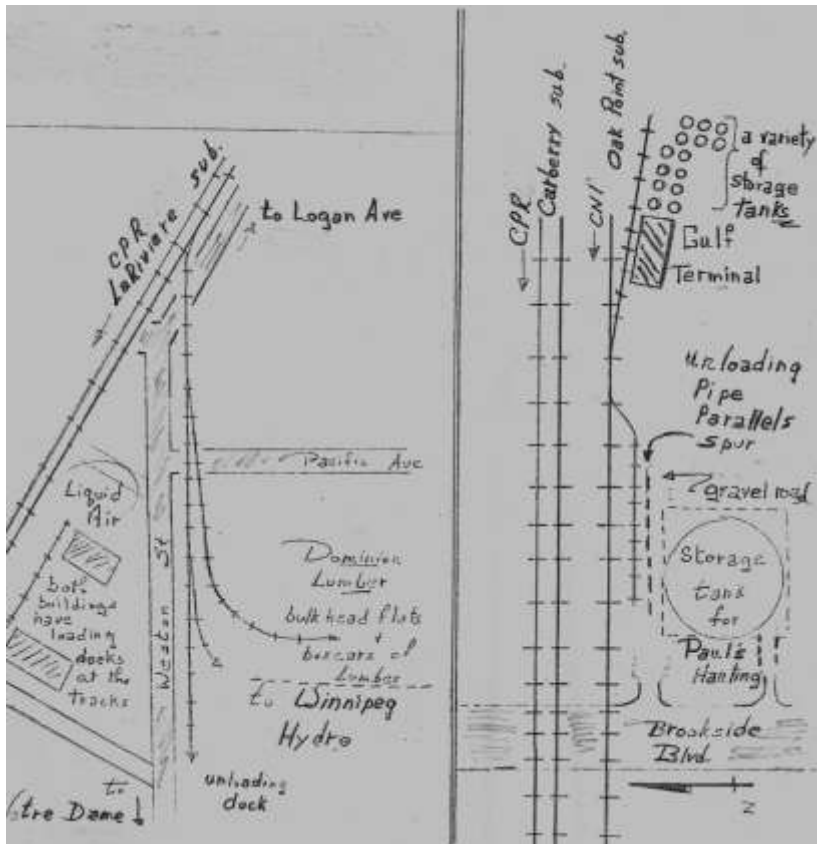 CPR
LaRiviere sub.
to Logan Ave
Pacific Ave
Liquid
Air
both
buildings
have
loading
docks
at the
tracks
Weston St
Dominion
Lumber
bulkhead flats
boxcars of
Lumber
to Winnipeg
Hydro
unloading
dock
to
Notre Dame
CPR
Carberry sub.
CN
Oak Point sub.
a variety
of
storage
tanks
Gulf
Terminal
Unloading
Pipe
Parallels
Spur
gravel road
Storage
tank
for
Paul's
Hauling
Brookside
Blvd.
N